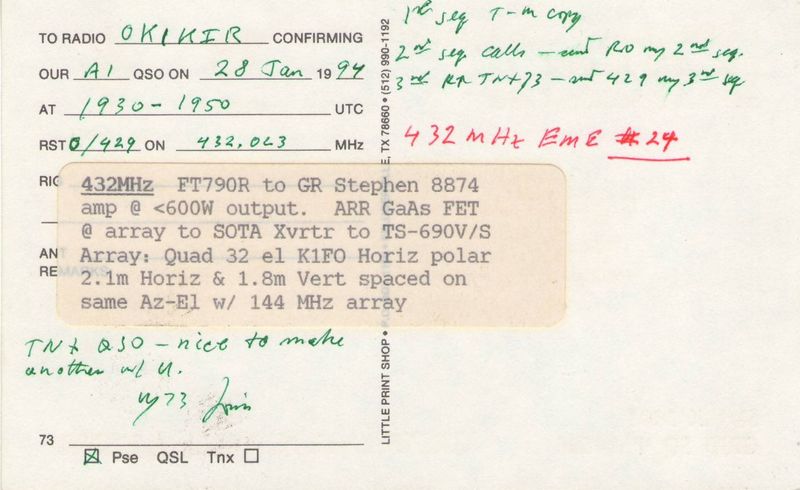 TO RADIO OK1KIR CONFIRMING
OUR A1 QSO ON 28 Jan 1994
AT 1930-1950 UTC
RST O/429 ON 432.023 MHz
RIG
432MHz FT790R to GR Stephen 8874
amp @ <600W output. ARR GaAs FET
@ array to SOTA Xvrtr to TS-690V/S
Array: Quad 32 el K1FO Horiz polar
2.1m Horiz & 1.8m Vert spaced on
same Az-El w/ 144 MHz array
ANT
REMARKS
TNX QSO - nice to make
another w/ U.
Vy 73
73
☒ Pse QSL Tnx ☐
LITTLE PRINT SHOP • P.O. E, TX 78660 • (512) 990-1192
1st seq T-M copy
2nd seq calls - sent RO my 2nd seq.
3rd RR TNX 73 - sent 429 my 3rd seq
432 MHz EME #24